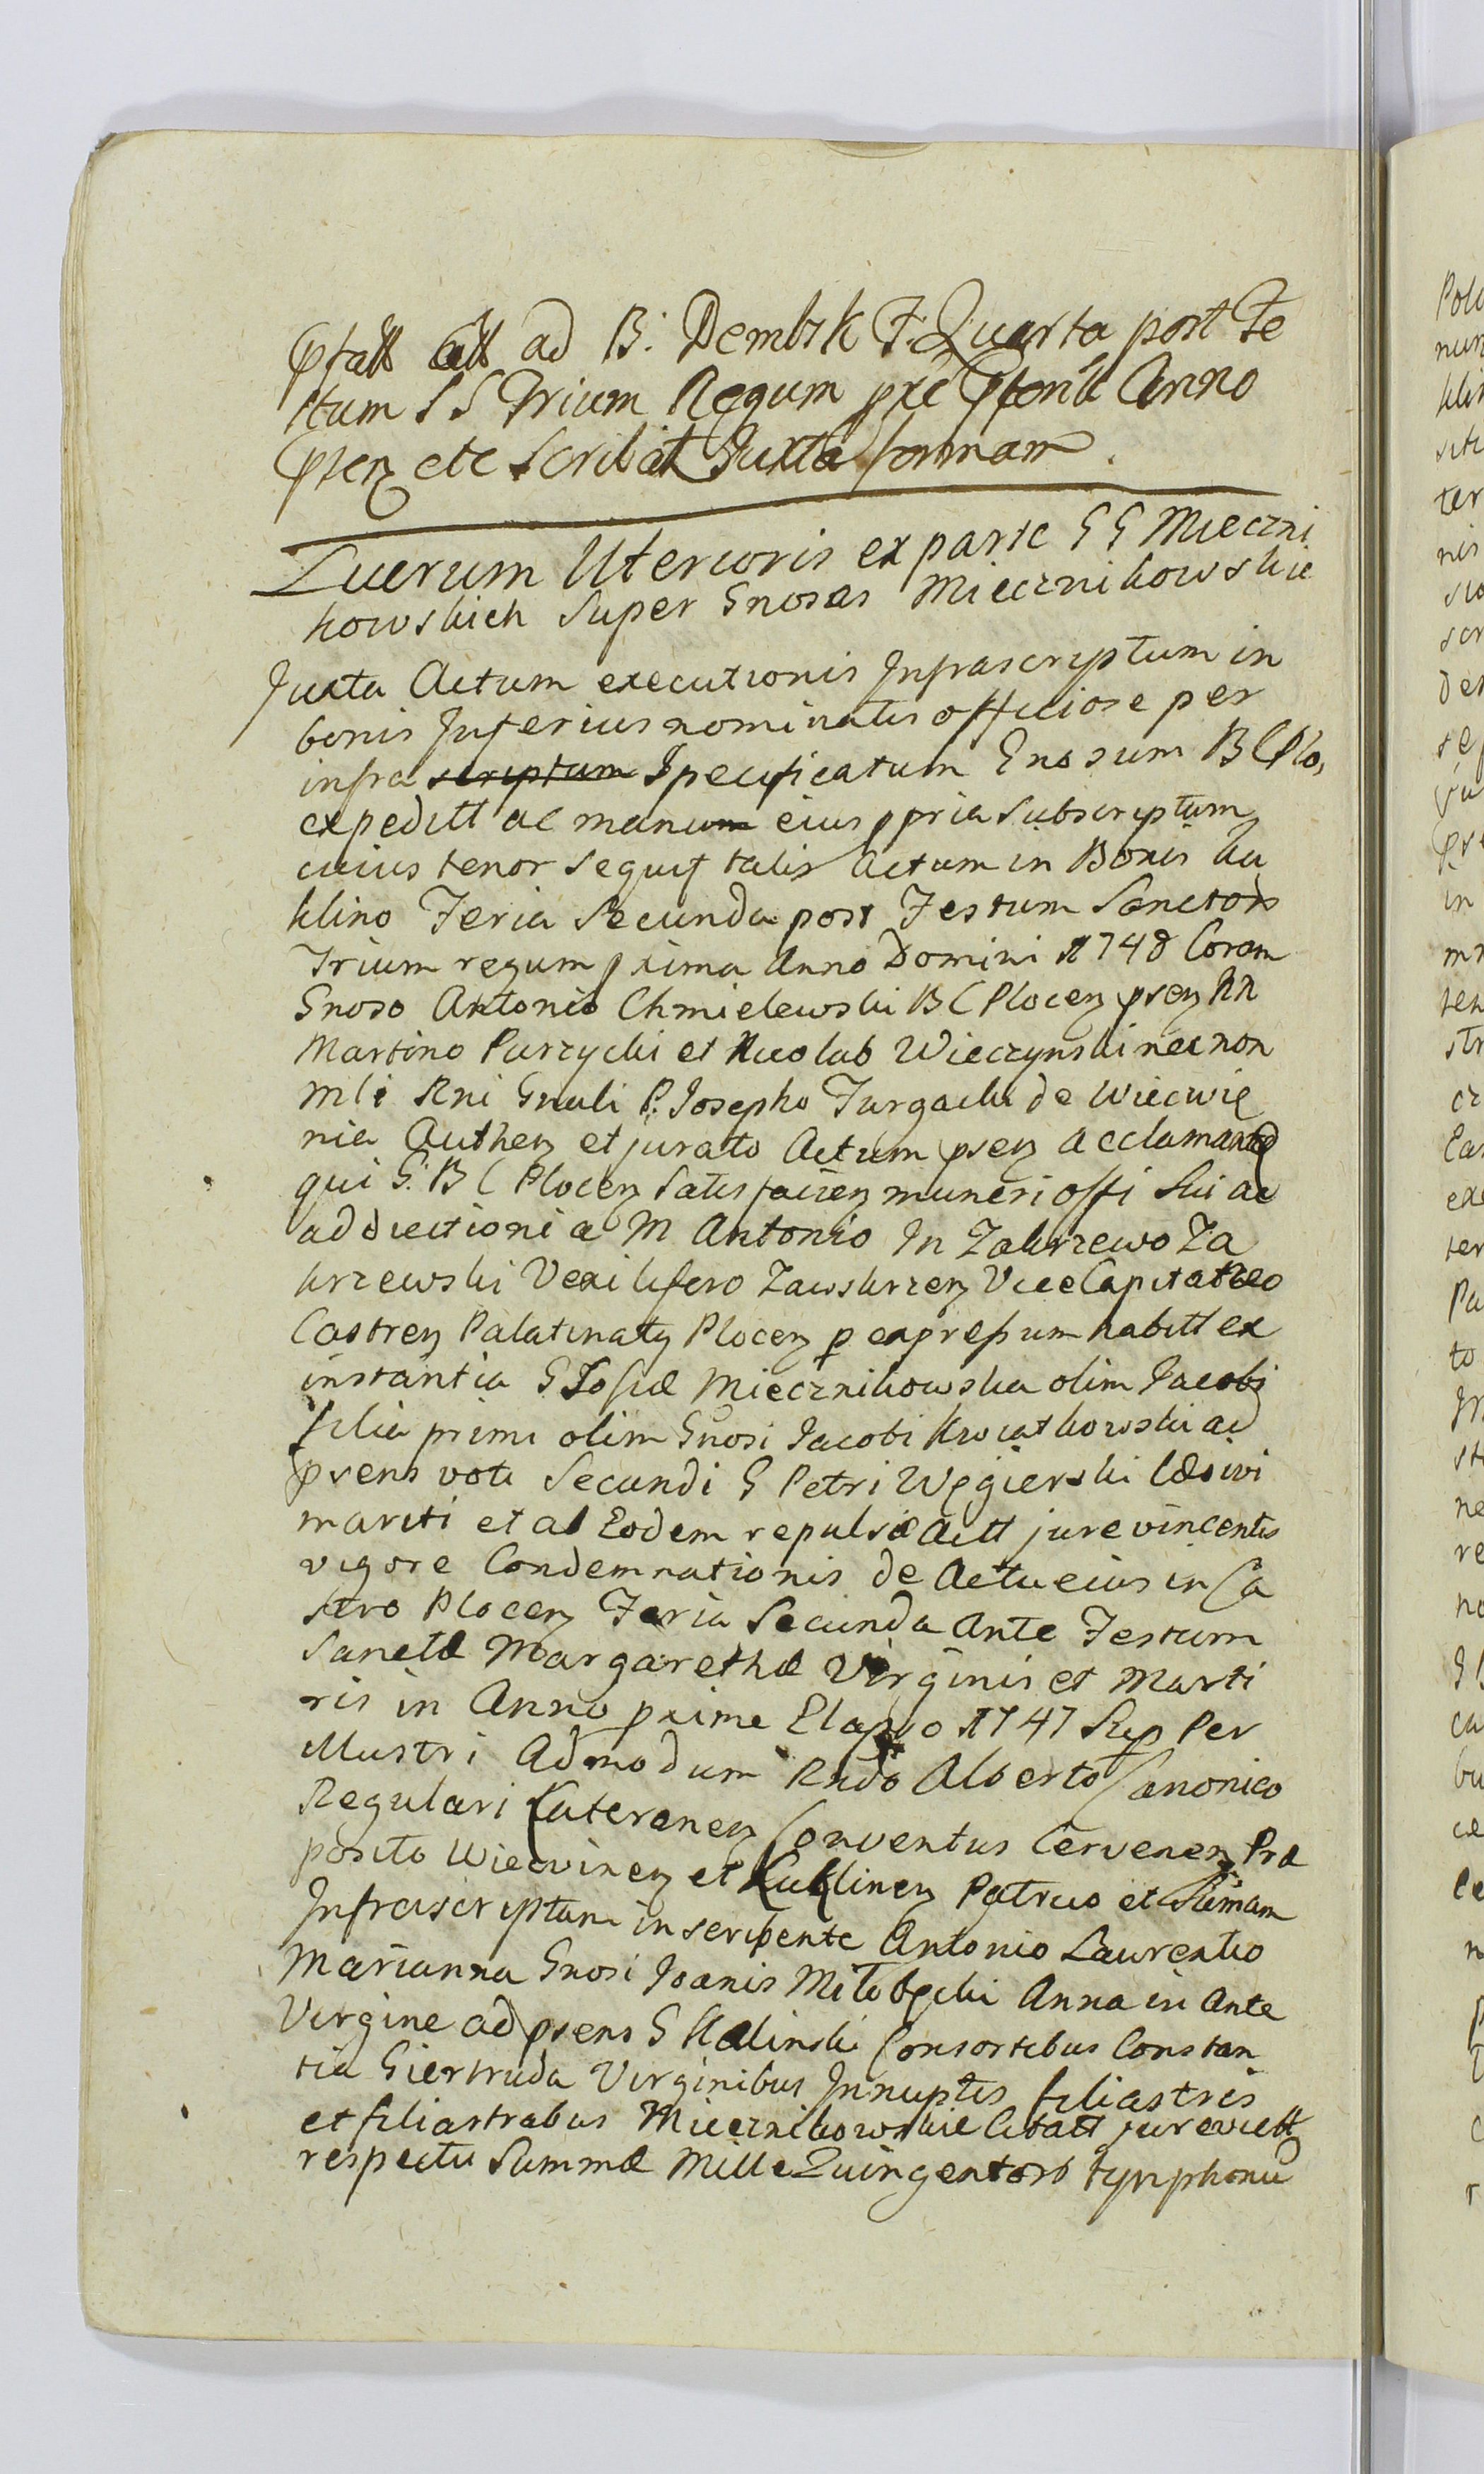 ad B: Dembsk F. Quarta post Fe
stum SS Trium Regum pxe Anno
etc Scribat Juxta formam.
Lucrum Ulterioris ex parte GG Mieczni
kowskich Super Gnosas Miecznikowskie
Juxta Actum executionis Infrascriptum in
bonis Inferius nominatis officiose per
infra scriptum Specificatum Gnosum B C Plo,
expeditt ac manum eius ppria subscriptum
cuius tenor sequit talis Actum in Bonis Ku
klino Feria Secunda post Festum Sanctors
Trium regum pxima Anno Domini 1748 Coram
Gnoso Antonio Chmielewski B C Plocen psen NN
Martino Parzycki et Nicolao Wieczynski nec non
Mli Rni Gnali P. Josepho Turgacki de Wiecwie
nia Authen et jurato Actum psen acclamante
qui G: B C Plocen Satisfacien muneri offi Sui ac
addictioni a M Antonio In Zakrzewo Za
krzewski Vexilifero Zawskrzen Vice Capitaneo
Castren Palatinatus Plocen p expressum habitt ex
instantia G Zofiæ Miecznikowska olim Jacobi
filia primi olim Gnosi Jacobi Kwiatkowski ad
prens voti Secundi G Petri Węgierski
mariti et ab Eodem repulsæ Actt jure vincentis
vigore Condemnationis de Actu eius in Ca
stro Plocen Feria Secunda Ante Festum
Sanctæ Margarethæ Virginis et Marti
ris in Anno pxime Elapso 1747 Sup Per
Illustri Admodum Rndo Alberto Canonico
Regulari Lateranen Conventus Cervenen Præ
posito Wiecvinen et Kuklinen Patruo et Sumam
Infrascriptam inscribente Antonio Laurentio
Marianna Gnosi Joanis Miłobęcki Anna in Ante
Virgine ad psens G Kalinski Consortibus Constan
tia Giertruda Virginibus Innuptis filiastris
et filiastrabus Miecznikowskie Citatt jure victt
respectu Summæ Mille Quingentors tynphonu